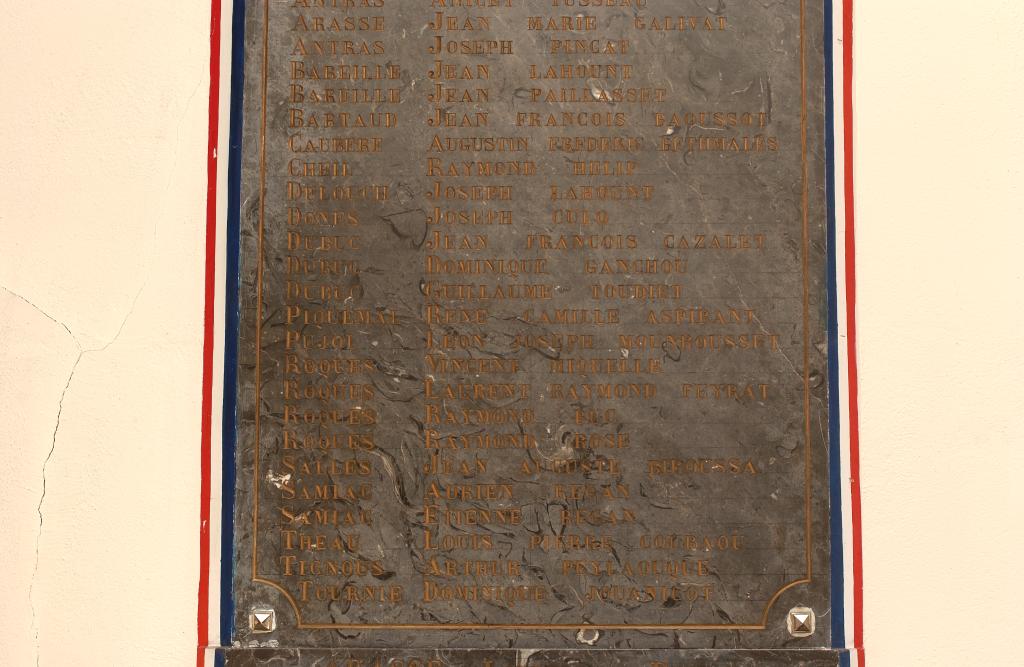 ANTRAS ANICET TUSSEAU
ARASSE JEAN MARIE GALIVAT
ANTRAS JOSEPH PINCAT
BAREILLE JEAN LAHOUNT
BAREILLE JEAN PAILLASSET
BARTAUD JEAN FRANCOIS BAOUSSOT
CAUBERE AUGUSTIN FREDERIC
CHEIL RAYMOND
DELOUCH JOSEPH LAHOUNT
DONES JOSEPH CULQ
DUBUC JEAN FRANCOIS CAZALET
DUBUC DOMINIQUE GANCHOU
DUBUC GUILLAUME TOUDIET
PIQUEMAL RENE CAMILLE ASPIRANT
PUJOL LEON JOSEPH MOUNROUSSET
ROQUES VINCENT RIQUELLE
ROQUES LAURENT RAYMOND PEYRAT
ROQUES RAYMOND
ROQUES RAYMOND ROSE
SALLES JEAN AUGUSTE BIROUSSA
SAMIAC ADRIEN REGAN
SAMIAC ETIENNE REGAN
THEAU LOUIS PIERRE GOUBAOU
TIGNOUS ARTHUR PEYLAOUQUE
TOURNIE DOMINIQUE JOUANICOT